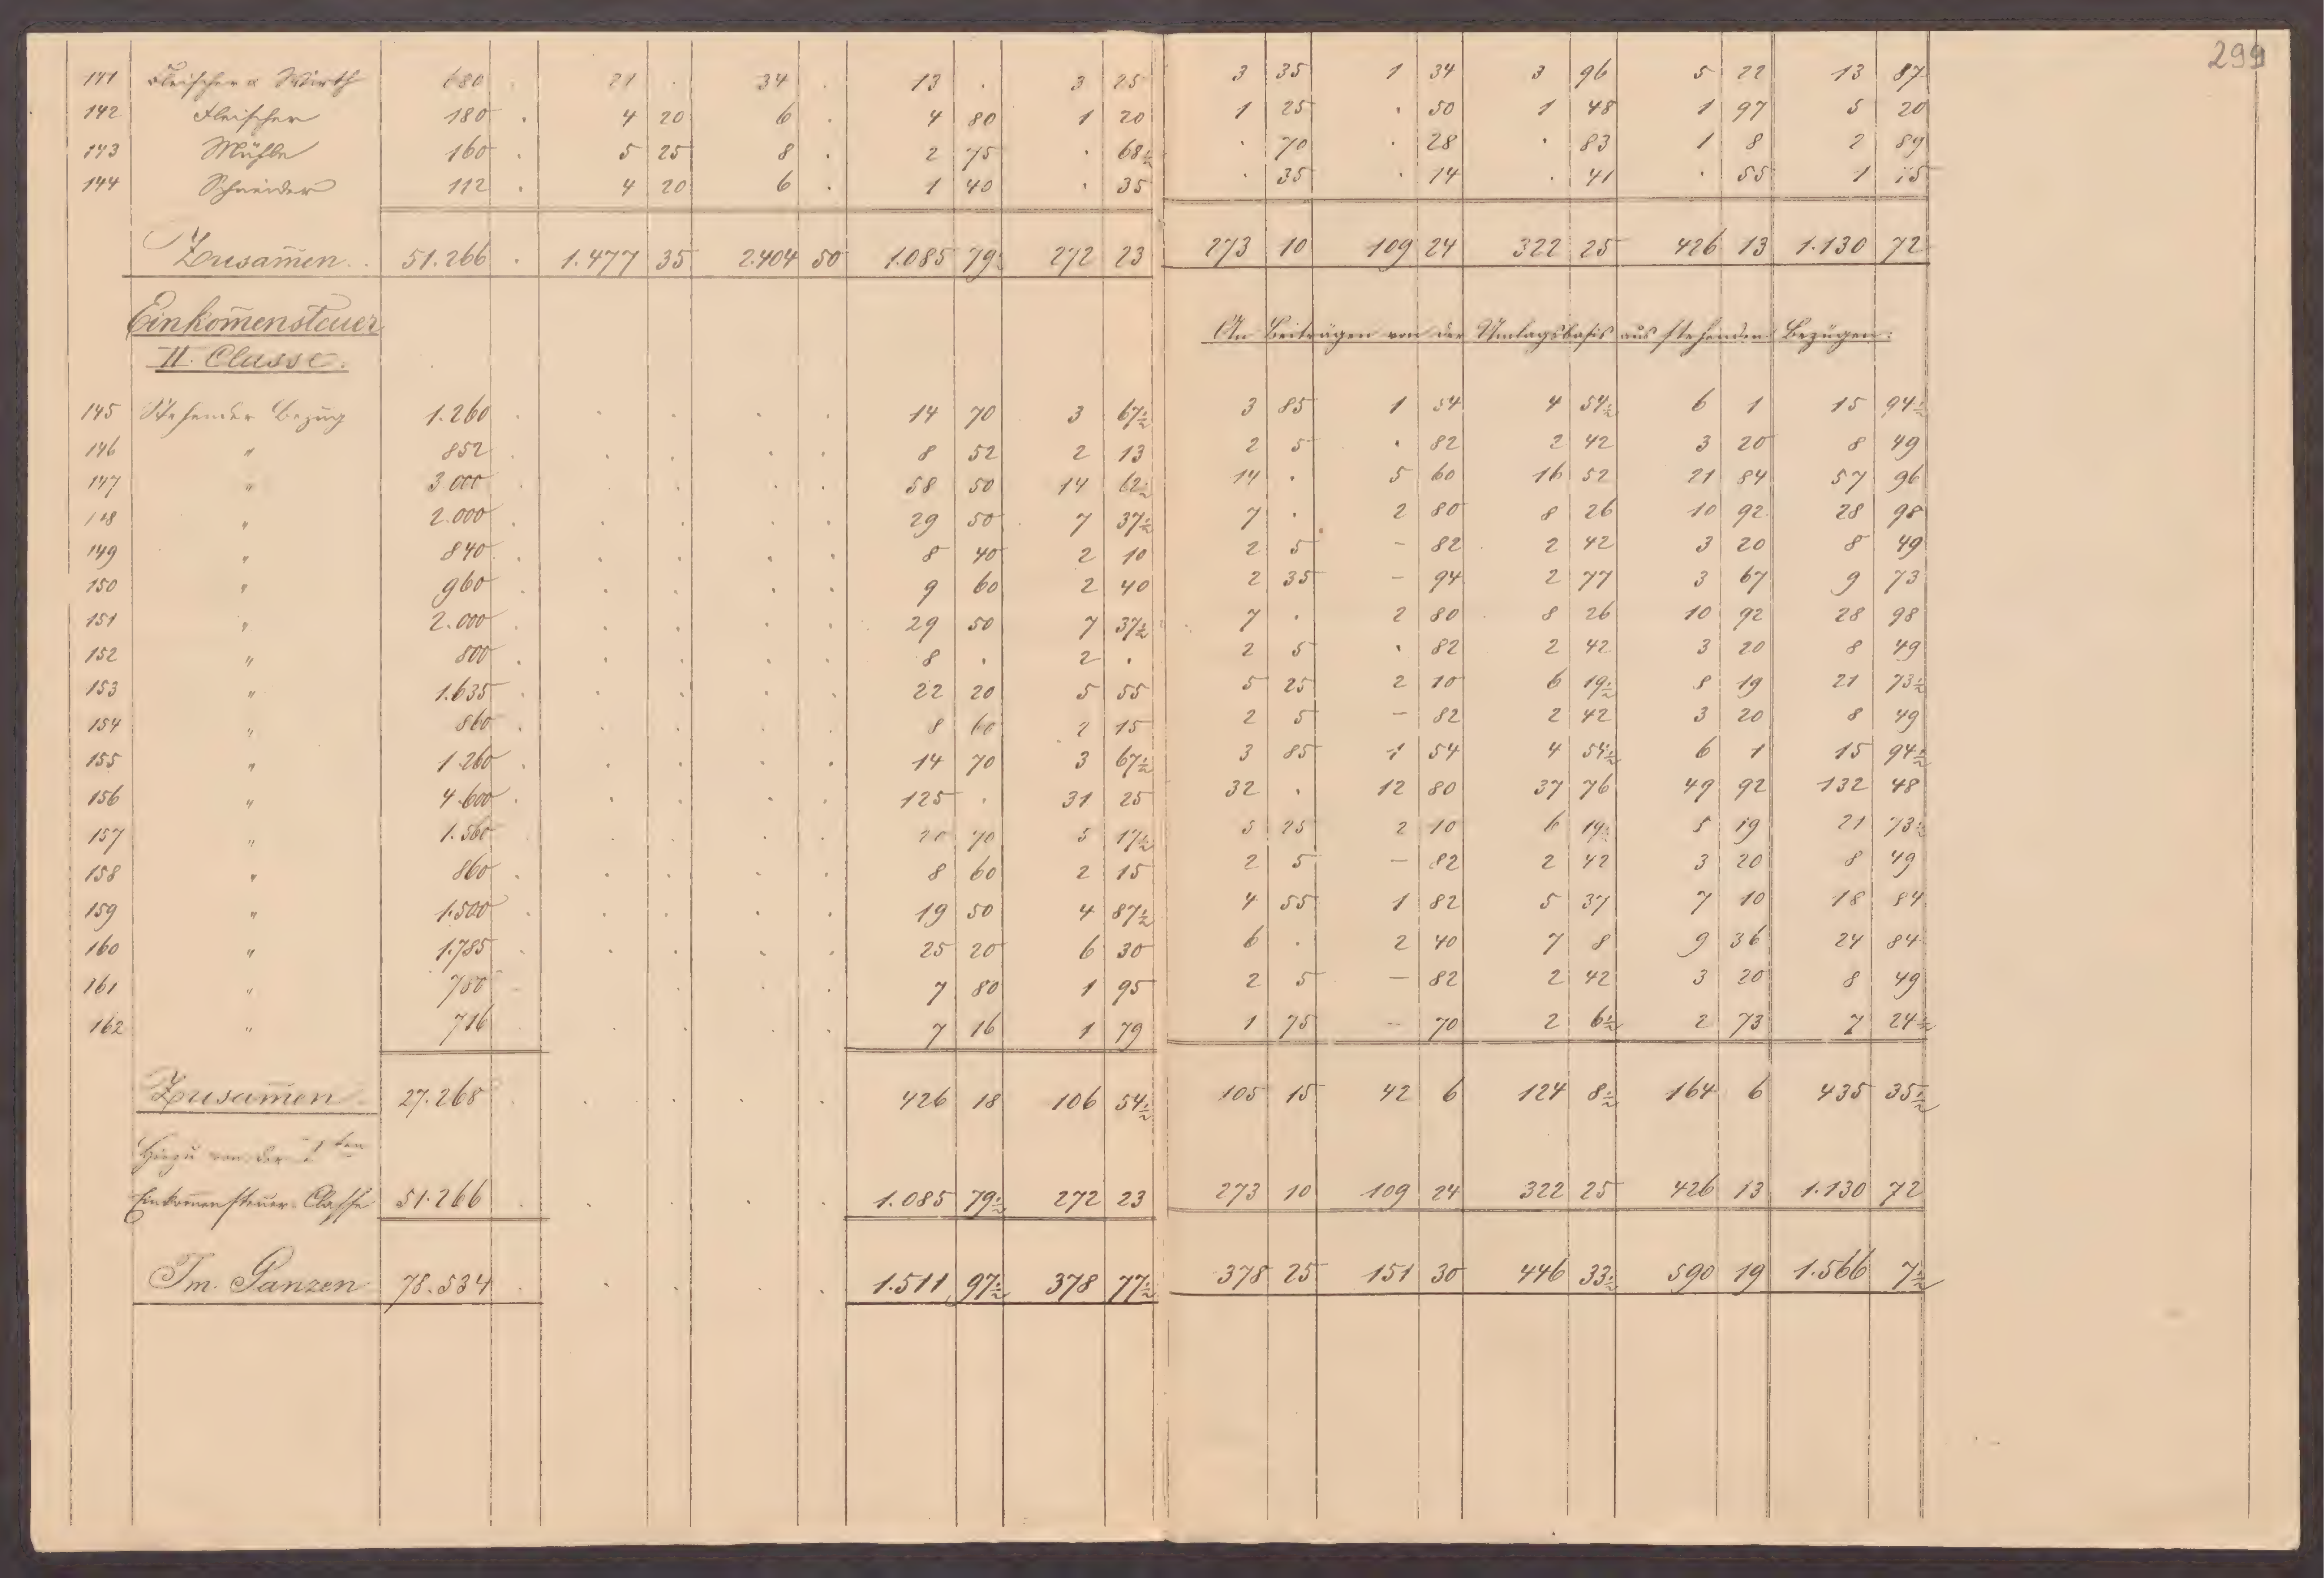 299
141 Fleischer u Wirth 680 . 21 . 34 . 13 . 3 25 3 35 1 34 3 96 5 22 13 87
142 Fleischer 180 . 4 20 6 . 4 80 1 20 1 25 . 50 1 48 1 97 5 20
143 Mühle 160 . 5 25 8 . 2 75 . 68½ . 70 . 28 . 83 1 8 2 89
144 Schneider 112 . 4 20 6 . 1 40 . 35 . 35 . 14 . 41 . 55 1 45
Zusam̄en . . 51.266 . 1.477 35 2.404 50 1.085 79½ 272 23 273 10 109 24 322 25 426 13 1.130 72
Einkom̄ensteuer
II. Classe.
An Beiträgen von der Umlagsbasis aus stehenden Bezügen:
145 Stehender Bezug 1.260 . . . . . 14 70 3 67½ 3 85 1 54 4 54½ 6 1 15 94½
146 " 852 . . . . . 8 52 2 13 2 5 . 82 2 42 3 20 8 49
147 " 3.000 . . . . . 58 50 14 62½ 14 . 5 60 16 52 21 84 57 96
148 " 2.000 . . . . . 29 50 7 37½ 7 . 2 80 8 26 10 92 28 98
149 " 840 . . . . . 8 40 2 10 2 5 - 82 2 42 3 20 8 49
150 " 960 . . . . . 9 60 2 40 2 35 - 94 2 77 3 67 9 73
151 " 2.000 . . . . . 29 50 7 37½ 7 . 2 80 8 26 10 92 28 98
152 " 800 . . . . . 8 . 2 . 2 5 . 82 2 42 3 20 8 49
153 " 1.635 . . . . . 22 20 5 55 5 25 2 10 6 19½ 8 19 21 73½
154 " 860 . . . . . 8 60 2 15 2 5 - 82 2 42 3 20 8 49
155 " 1.260 . . . . . 14 70 3 67½ 3 85 1 54 4 54½ 6 1 15 94½
156 " 4.600 . . . . . 125 . 31 25 32 . 12 80 37 76 49 92 132 48
157 " 1.560 . . . . . 20 70 5 17½ 5 25 2 10 6 19½ 8 19 21 73½
158 " 860 . . . . . 8 60 2 15 2 5 - 82 2 42 3 20 8 49
159 " 1.500 . . . . . 19 50 4 87½ 4 55 1 82 5 37 7 10 18 84
160 " 1.785 . . . . . 25 20 6 30 6 . 2 40 7 8 9 36 24 84
161 " 780 . . . . 7 80 1 95 2 5 - 82 2 42 3 20 8 49
162 " 716 . . . . . 7 16 1 79 1 75 - 70 2 6½ 2 73 7 24½
Zusam̄en 27.268 . . . . . 426 18 106 54½ 105 15 42 6 124 8½ 164 6 435 35½
Hiezu von der Iten
Einkom̄ensteuer-Classe 51.266 . . . . . 1.085 79½ 272 23 273 10 109 24 322 25 426 13 1.130 72
Im Ganzen 78.534 . . . . . 1.511 97½ 378 77½ 378 25 151 30 446 33½ 590 19 1.566 7½